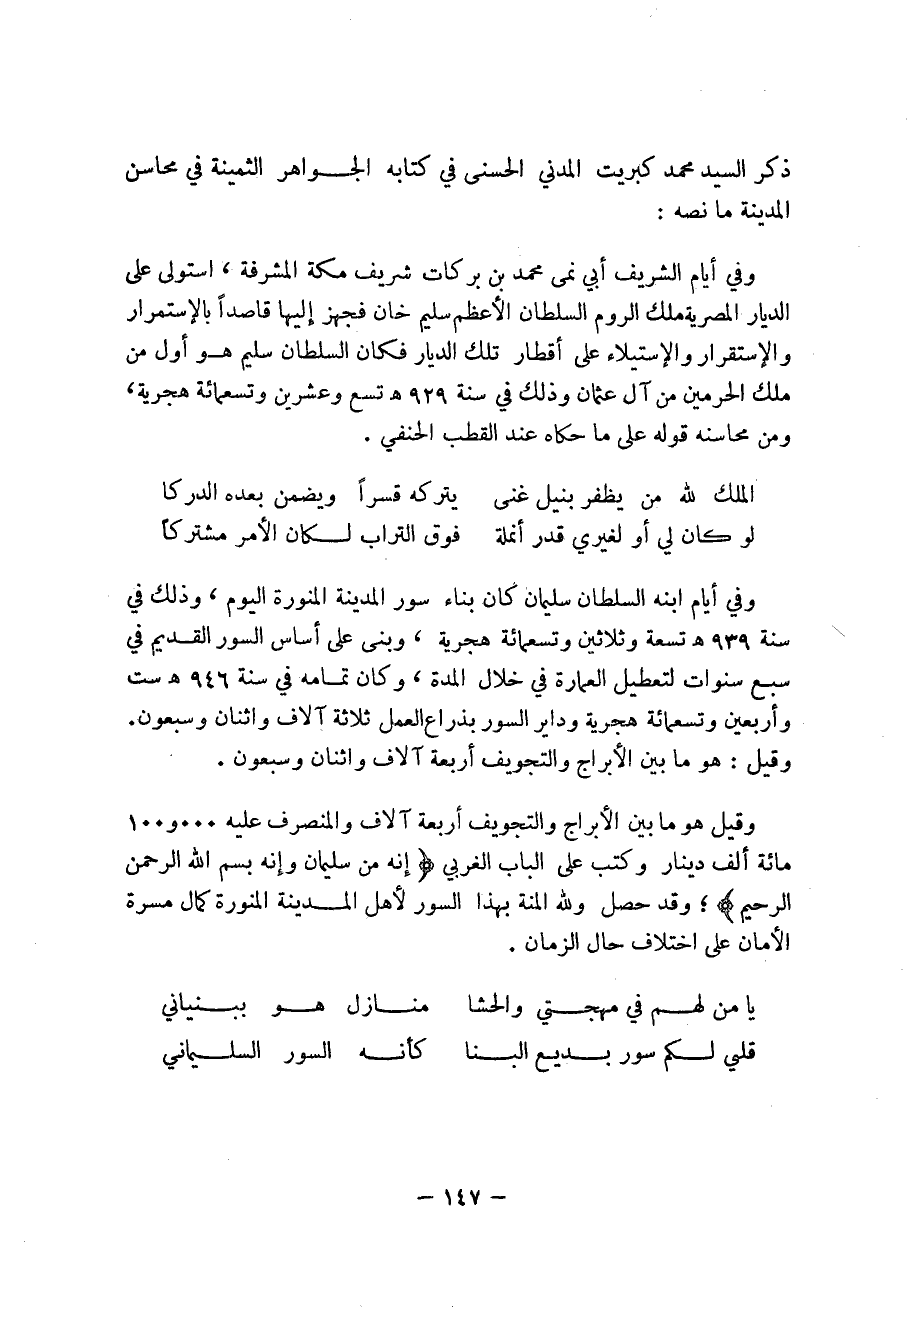 ذكر السيد محمد كبريت المدني الحسنى في كتابه الجـــواهر الثمينة في محاسن
المدينة ما نصه :
وفي أيام الشريف أبي نمى محمد بن بركات شريف مكة المشرفة ، استولى على
الديار المصرية ملك الروم السلطان الأعظم سليم خان فجهز إليها قاصداً بالإستمرار
والإستقرار والإستيلاء على أقطار تلك الديار فكان السلطان سليم هـو أول من
ملك الحرمين من آل عثمان وذلك في سنة ٩٢٩ هـ تسع وعشرين وتسعمائة هجرية ،
ومن محاسنه قوله على ما حكاه عند القطب الحنفي .
الملك لله من يظفر بنيل غنى    يتركه قسراً ويضمن بعده الدركا
لو كان لي أو لغيري قدر أنملة    فوق التراب لـــكان الأمر مشتركا
وفي أيام ابنه السلطان سليمان كان بناء سور المدينة المنورة اليوم ، وذلك في
سنة ٩٣٩ هـ تسعة وثلاثين وتسعمائة هجرية ، وبنى على أساس السور القـديم في
سبع سنوات لتعطيل العمارة في خلال المدة ، وكان تمامه في سنة ٩٤٦ هـ ست
وأربعين وتسعمائة هجرية وداير السور بذراع العمل ثلاثة آلاف واثنان وسبعون.
وقيل : هو ما بين الأبراج والتجويف أربعة آلاف واثنان وسبعون .
وقيل هو ما بين الأبراج والتجويف أربعة آلاف والمنصرف عليه ١٠٠و٠٠٠
مائة ألف دينار وكتب على الباب الغربي ﴿ إنه من سليمان وإنه بسم الله الرحمن
الرحيم ﴾ ؛ وقد حصل ولله المنة بهذا السور لأهل المـــدينة المنورة كمال مسرة
الأمان على اختلاف حال الزمان .
يا من لهـــم في مهجـــتي والحشا    منـــازل هـــو ببـــنياني
قلبي لـــكم سور بـــديع البـــنا    كأنـــه السور السلـــيماني
– ١٤٧ –